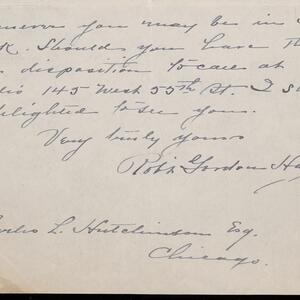 you may be in
Should you have
disposition to call at
145 West 55th St. I
delighted to see you.
Very truly yours
Robt Gordon
L. Hutchinson Esq.
Chicago.